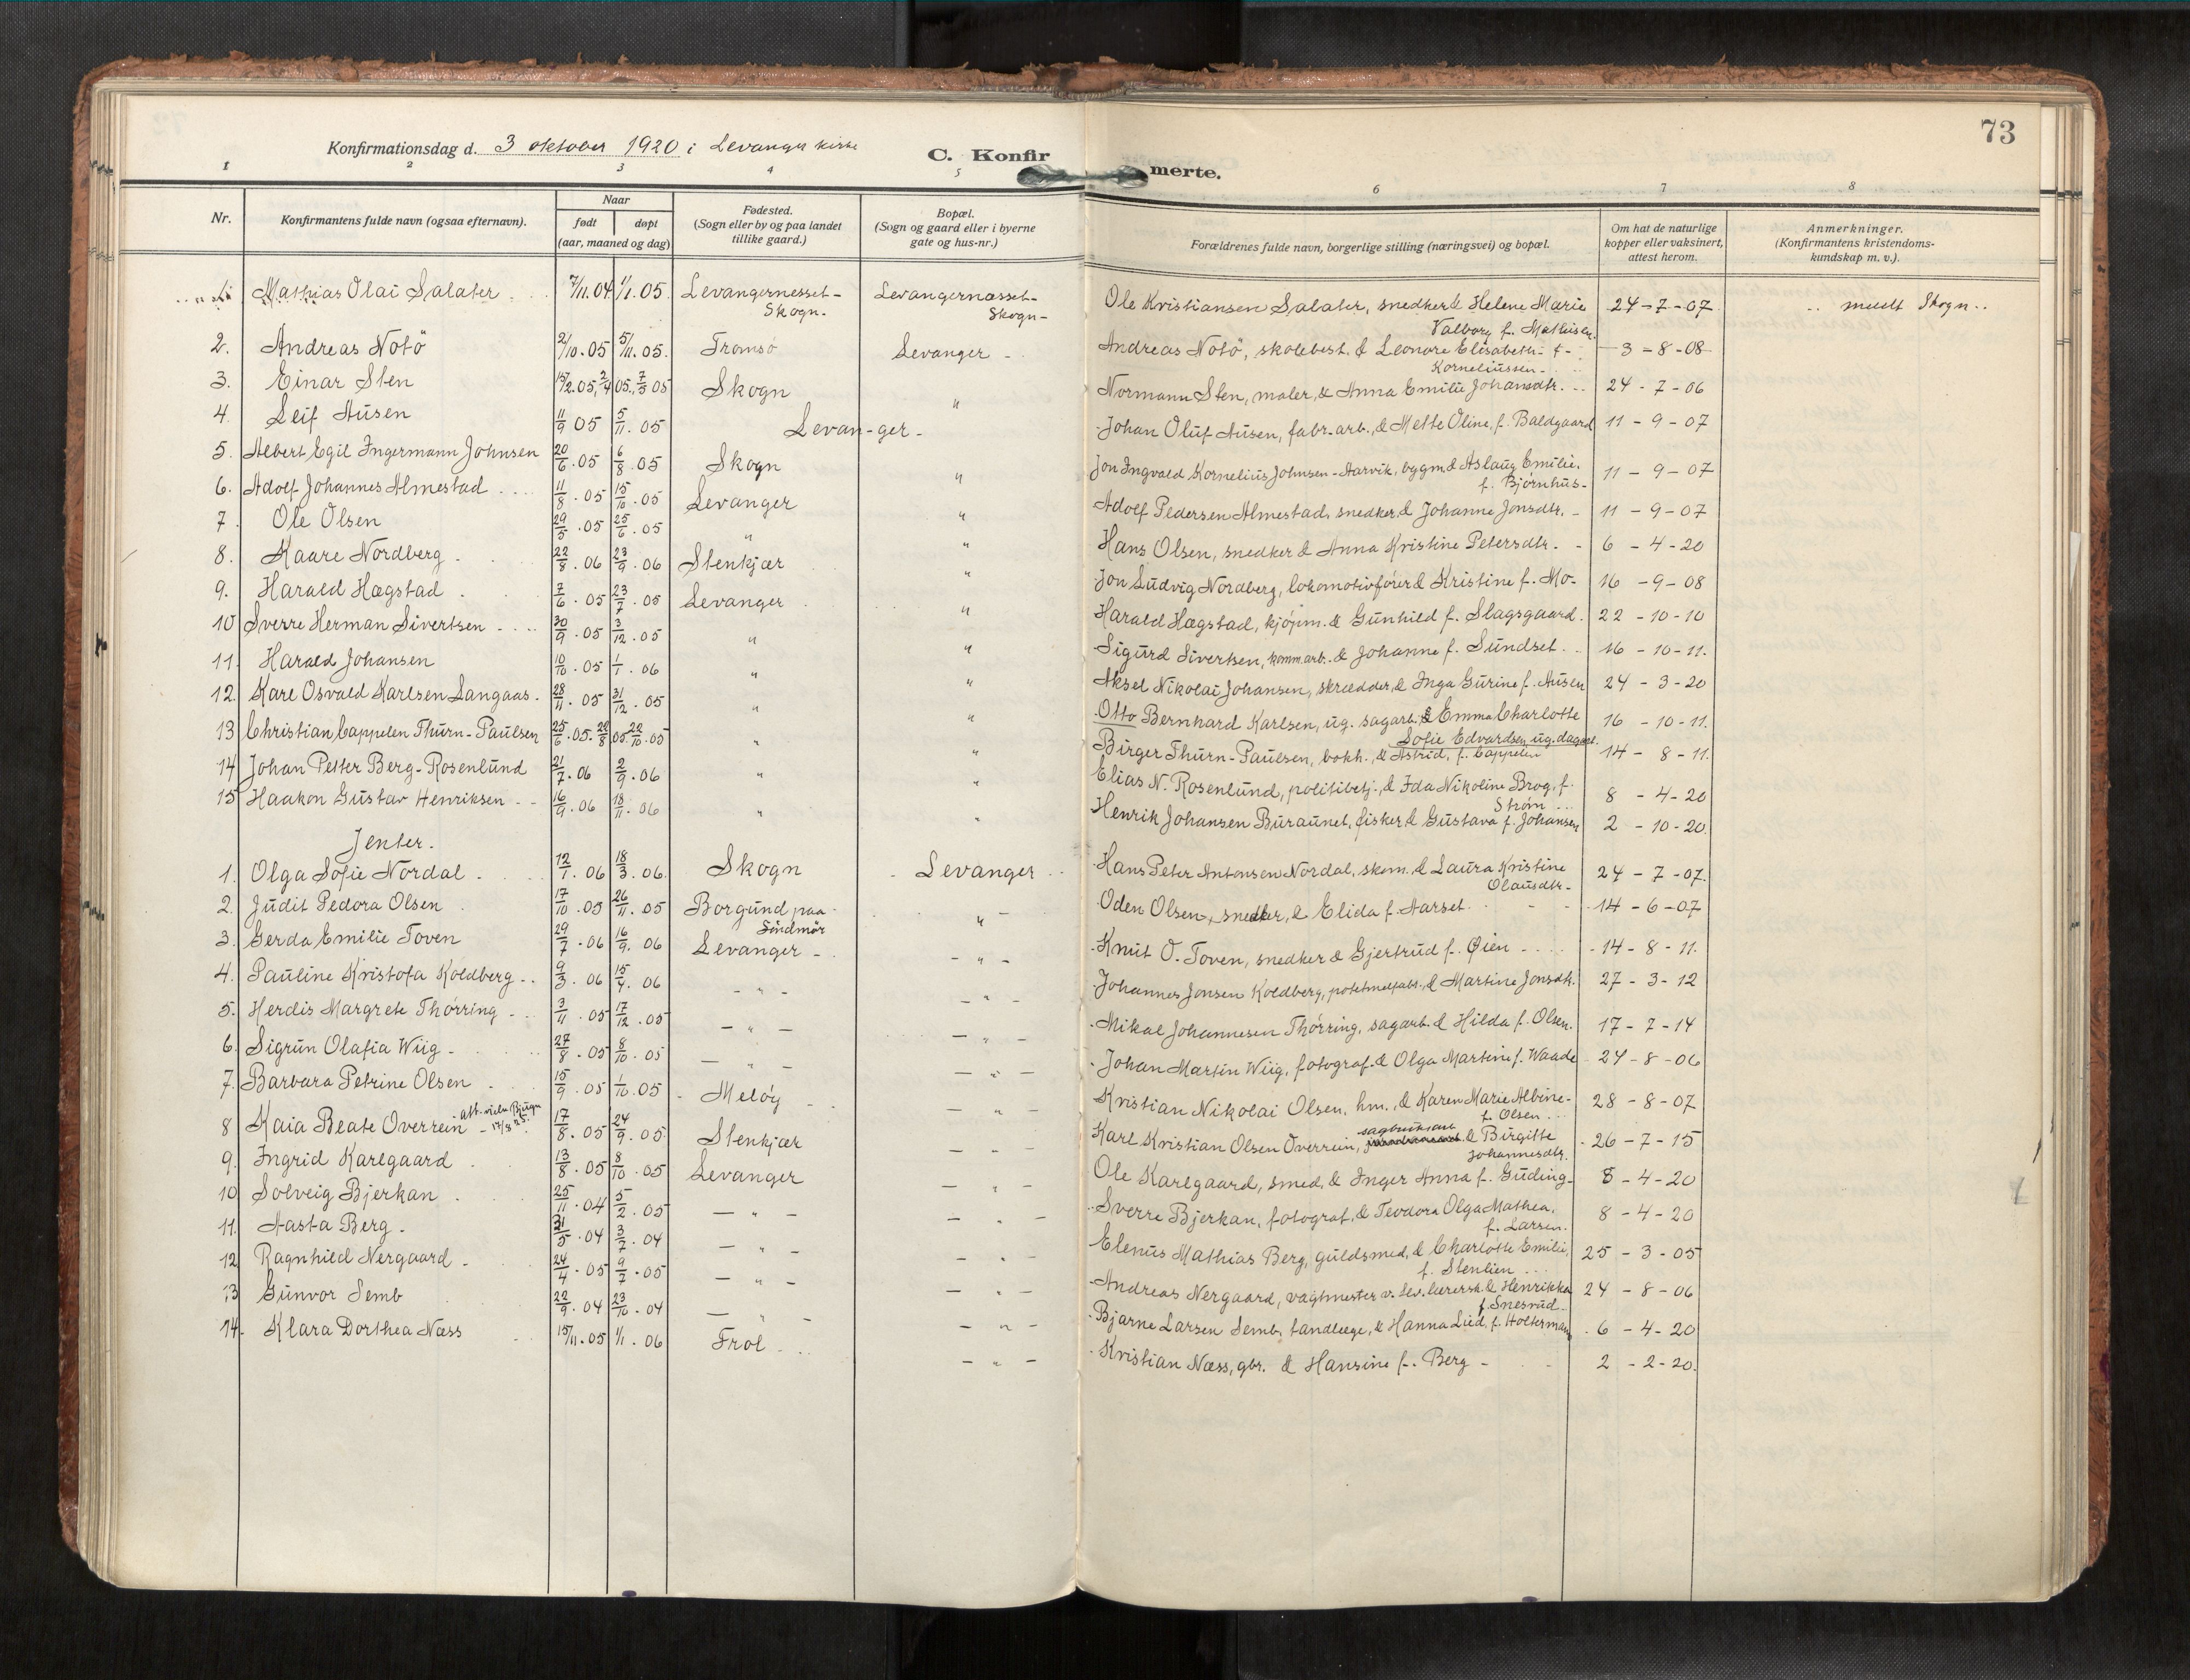 73
Konfirmationsdag d. 3 oktober 1920 i Levanger kirke
C. Konfirmerte.
1 2 3 4 5 6 7 8
Nr. | Konfirmantens fulde navn (ogsaa efternavn). | Naar født | døpt (aar, maaned og dag) | Fødested. (Sogn eller by og paa landet tillike gaard.) | Bopæl. (Sogn og gaard eller i byerne gate og hus-nr.) | Forældrenes fulde navn, borgerlige stilling (næringsvei) og bopæl. | Om hat de naturlige kopper eller vaksinert, attest herom. | Anmerkninger. (Konfirmantens kristendoms-kundskap m. v.).
1. Mathias Olai Salater 7/11.04 1/1.05 Levangernesset- Skogn- Levangernæsset- Skogn- Ole Kristiansen Salater, snedker & Helene Marie Valborg f. Mathisen. 24-7-07 meldt Skogn
2. Andreas Notö 2/10.05 5/11.05. Tromsö Levanger - Andreas Notö, skolebest. & Leonore Elisabeth f- Korneliussen- 3-8-08
3. Einar Sten 15/2.05, 2/4 05., 7/5 05 Skogn " Normann Sten, maler, & Anna Emilie Johansdtr. 24-7-06
4. Leif Ausen 11/9 05 5/11.05 Levan-ger- Johan Oluf Ausen, fabr-arb., & Mette Oline, f. Baldgaard 11-9-07
5. Albert Egil Ingermann Johnsen 20/6.05 6/8.05 Skogn " Jon Ingvald Kornelius Johnsen-Aarvik, bygm. & Aslaug Emilie, f. Bjørnhus- 11-9-07
6. Adolf Johannes Almestad 11/8.05 15/10.05 Levanger " Adolf Pedersen Almestad, snedker, & Johanne Jonsdtr.- 11-9-07
7. Ole Olsen 29/5.05 25/6.05 " " Hans Olsen, snedker & Anna Kristine Petersdtr. 6-4-20
8. Kaare Nordberg 22/8.06 23/9.06 Stenkjær " Jon Ludvig Nordberg, lokomotivfører & Kristine f. Mo- 16-9-08
9. Harald Hægstad 7/6.05 23/7.05 Levanger " Harald Hægstad, kjøpm. & Gunhild f. Slagsgaard. 22-10-10
10 Sverre Herman Sivertsen 30/9.05 3/12.05 " " Sigurd Sivertsen, komm.arb. & Johanne f. Sundset 16-10-11.
11. Harald Johansen 10/10.05 1/1.06 " " Aksel Nikolai Johansen, skrædder, & Inga Gurine f. Ausen 24-3-20
12. Karl Osvald Karlsen Langaas. 28/11.05 31/12.05 " " Otto Bernhard Karlsen, ug. sagarb., & Emma Charlotte Sofie Edvardsen, ug. 16-10-11.
13 Christian Cappelen Thurn-Paulsen 25/6.05. 22/8 05 22/10.05 " " Birger Thurn-Paulsen, bokh., & Astrid, f. Cappelen 14-8-11.
14 Johan Petter Berg-Rosenlund 21/7.06 2/9.06 " " Elias N. Rosenlund, politibetj., & Ida Nikoline Brog, f. Strøm 8-4-20
15 Haakon Gustav Henriksen 16/9.06 18/11.06 " " Henrik Johansen Buraunet, fisker & Gustava f. Johansen 2-10-20.
Jenter.
1. Olga Sofie Nordal 12/1.06 18/3.06. Skogn Levanger Hans Peter Antonsen Nordal, skom. & Laura Kristine Olausdtr- 24-7-07.
2. Judit Pedora Olsen 17/10.05 26/11.05 Borgund paa Söndmör " Oden Olsen, snedker, & Elida f. Aarset. 14-6-07
3. Gerda Emilie Toven 29/7.06 16/9.06 Levanger - " Knut O. Toven, snedker & Gjertrud f. Øien 14-8-11.
4. Pauline Kristofa Koldberg 9/3.06 15/4.06 " " Johannes Jonsen Koldberg, potetmelfabr., & Martine Jonsdtr. 27-3-12
5. Herdis Margrete Thørring 3/11.05 17/12.05 " " Mikal Johannesen Thørring, sagarb. & Hilda f. Olsen. 17-7-14
6. Sigrun Olafia Wiig 27/8.05 8/10.05 " " Johan Martin Wiig, fotograf. & Olga Martine f. Waade 24-8-06
7. Barbara Petrine Olsen 15/9.05 1/10.05 Meløy " Kristian Nikolai Olsen, hm., & Karen Marie Albine- f. Olsen 28-8-07
8 Kaia Beate Overrein Att. Bjugn 17/3 25. 17/8.05 24/9.05 Stenkjær " Karl Kristian Olsen Overrein, & Birgitte Johannesdtr. 26-7-15
9. Ingrid Karlgaard 13/8.05 8/10.05 Levanger " Ole Karlgaard, smed, & Inger Anna f. Guding- 8-4-20
10 Solveig Bjerkan 25/11.04 5/2.05 " " Sverre Bjerkan, fotograf, & Teodora Olga Mathea, f. Larsen. 8-4-20
11. Aasta Berg. 31/5.04 3/7.04 " " Elenus Mathias Berg, guldsmed, & Charlotte Emilie, f. Stenlien 25-3-05
12 Ragnhild Nergaard 24/4.05 9/7.05 " " Andreas Nergaard, vagtmester v. Lev. lærersk. & Henrikka f. Snesrud 24-8-06
13 Gunvor Semb 22/9.04 23/10.04 " " Bjarne Larsen Semb, tandlæge, & Hanna Lied. f. Holtermann 6-4-20
14. Klara Dorthea Næss 15/11.05 1/1.06 Frol " Kristian Næss, gbr. & Hansine f. Berg- 2-2-20.